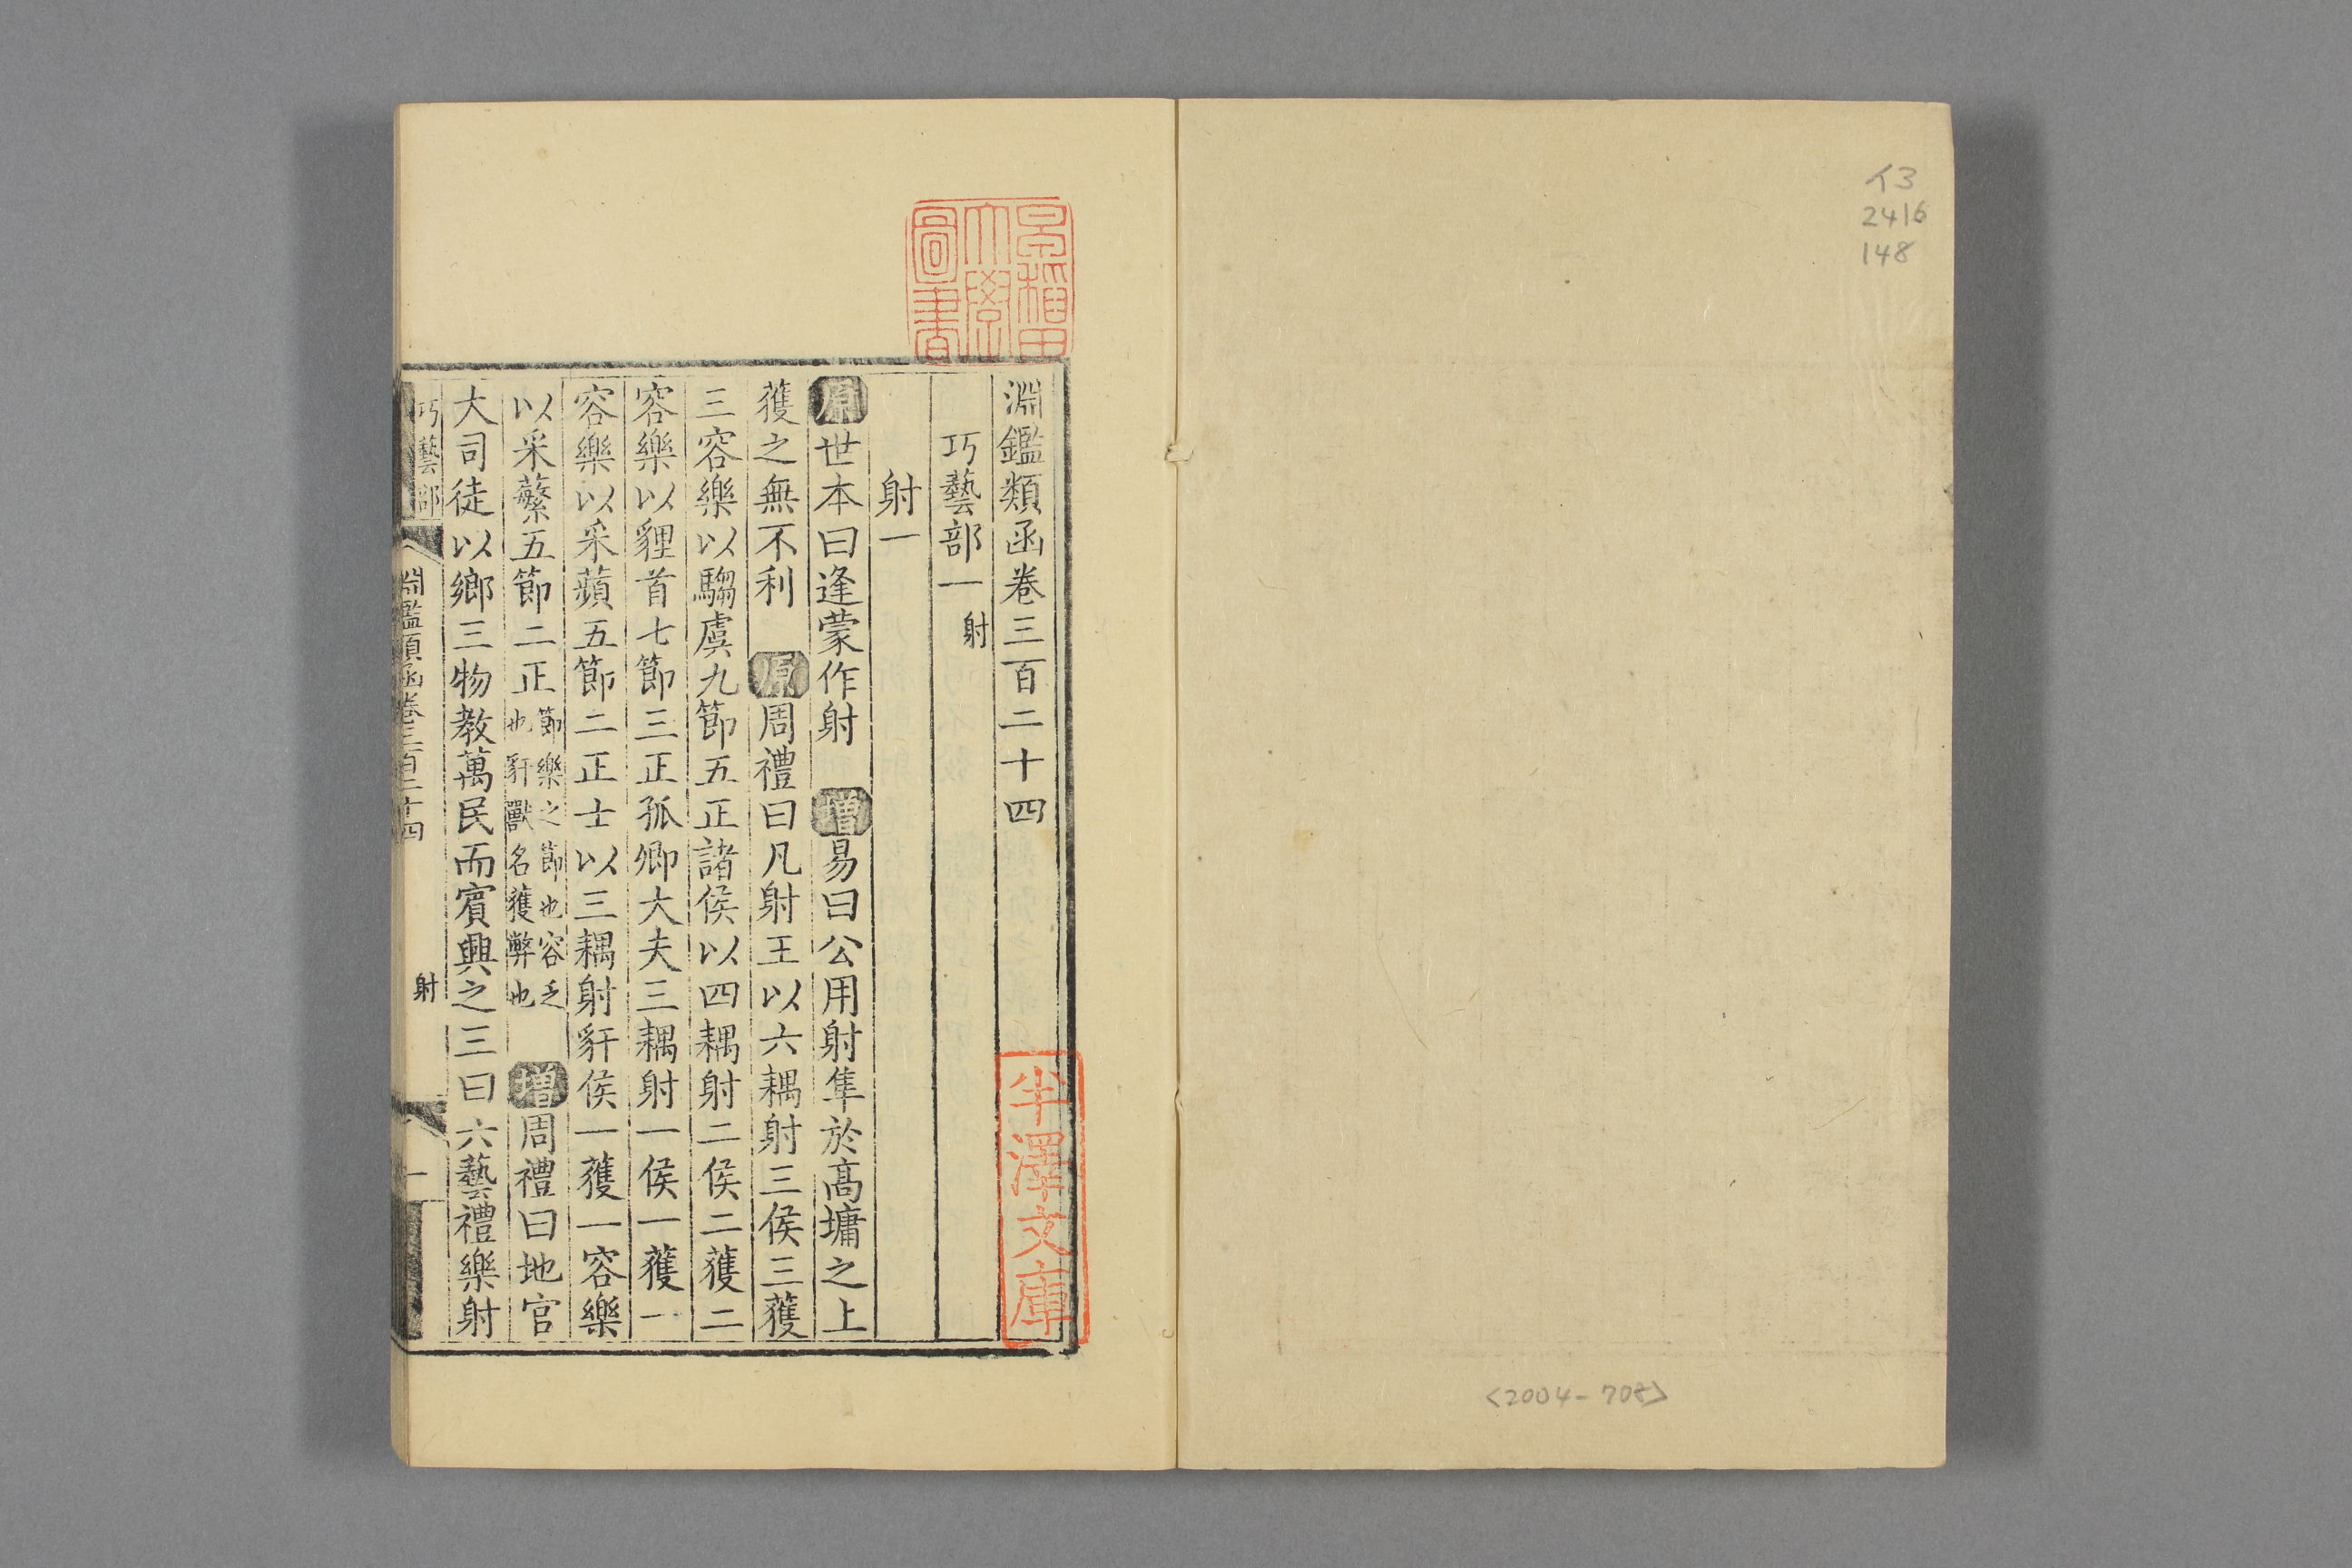 イ3
2416
148
<2004-708>
早稲田大學圖書
淵鑑類函卷三百二十四
巧藝部一 射
射一
原世本曰逢蒙作射 增易曰公用射隼於高墉之上
獲之無不利 原周禮曰凡射王以六耦射三侯三獲
三容樂以騶虞九節五正諸侯以四耦射二侯二獲二
容樂以貍首七節三正孤卿大夫三耦射一侯一獲一
容樂以采蘋五節二正士以三耦射豻侯一獲一容樂
以采蘩五節二正 節樂之節也容乏也豻獸名獲弊也 增周禮曰地官
大司徒以鄉三物教萬民而賓興之三曰六藝禮樂射
巧藝部 淵鑑類函卷三百二十四 射 一
半澤文庫